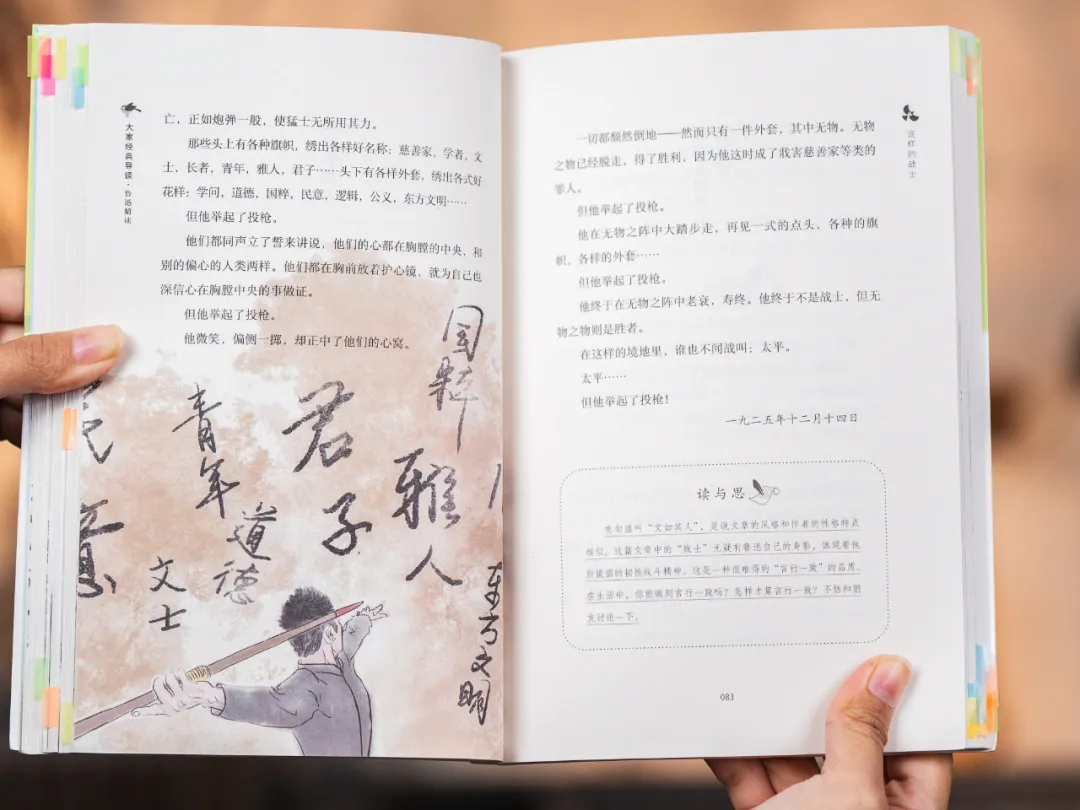 大家经典导读·鲁迅精读
亡，正如炮弹一般，使猛士无所用其力。
那些头上有各种旗帜，绣出各样好名称：慈善家，学者，文
士，长者，青年，雅人，君子……头下有各样外套，绣出各式好
花样：学问，道德，国粹，民意，逻辑，公义，东方文明……
但他举起了投枪。
他们都同声立了誓来讲说，他们的心都在胸膛的中央，和
别的偏心的人类两样。他们都在胸前放着护心镜，就为自己也
深信心在胸膛中央的事做证。
但他举起了投枪。
他微笑，偏侧一掷，却正中了他们的心窝。
国粹
民意
青年
君子
雅人
道德
文士
东方文明
这样的战士
一切都颓然倒地——然而只有一件外套，其中无物。无物
之物已经脱走，得了胜利，因为他这时成了戕害慈善家等类的
罪人。
但他举起了投枪。
他在无物之阵中大踏步走，再见一式的点头，各种的旗
帜，各样的外套……
但他举起了投枪。
他终于在无物之阵中老衰，寿终。他终于不是战士，但无
物之物则是胜者。
在这样的境地里，谁也不闻战叫：太平。
太平……
但他举起了投枪！
一九二五年十二月十四日
读与思
有句话叫“文如其人”，是说文章的风格和作者的性格特点
相似。这篇文章中的“战士”无疑有鲁迅自己的身影，体现着他
所提倡的韧性战斗精神。这是一种很难得的“言行一致”的品质。
在生活中，你能做到言行一致吗？怎样才算言行一致？不妨和朋
友讨论一下。
083